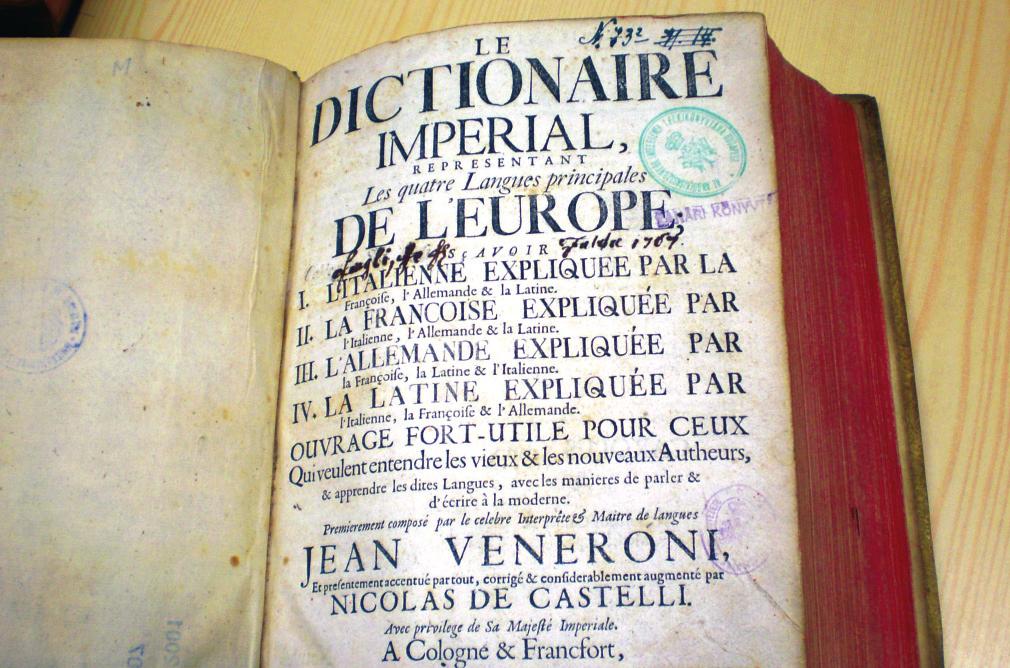 LE
DICTIONAIRE
IMPERIAL,
REPRESENTANT
Les quatre Langues principales
DE L'EUROPE,
SÇAVOIR
I. L'ITALIENNE EXPLIQUEE PAR LA
Françoise, l'Allemande & la Latine.
II. LA FRANCOISE EXPLIQUÉE PAR
l'Italienne, l'Allemande & la Latine.
III. L'ALLEMANDE EXPLIQUÉE PAR
la Françoise, la Latine & l'Italienne.
IV. LA LATINE EXPLIQUÉE PAR
l'Italienne, la Françoise & l'Allemande.
OUVRAGE FORT-UTILE POUR CEUX
Qui veulent entendre les vieux & les nouveaux Autheurs,
& apprendre les dites Langues, avec les manieres de parler &
d'écrire à la moderne.
Premierement composé par le celebre Interprête & Maitre de langues
JEAN VENERONI,
Et presentement accentué par tout, corrigé & considerablement augmenté par
NICOLAS DE CASTELLI.
Avec privilege de Sa Majesté Imperiale.
A Cologne & Francfort,